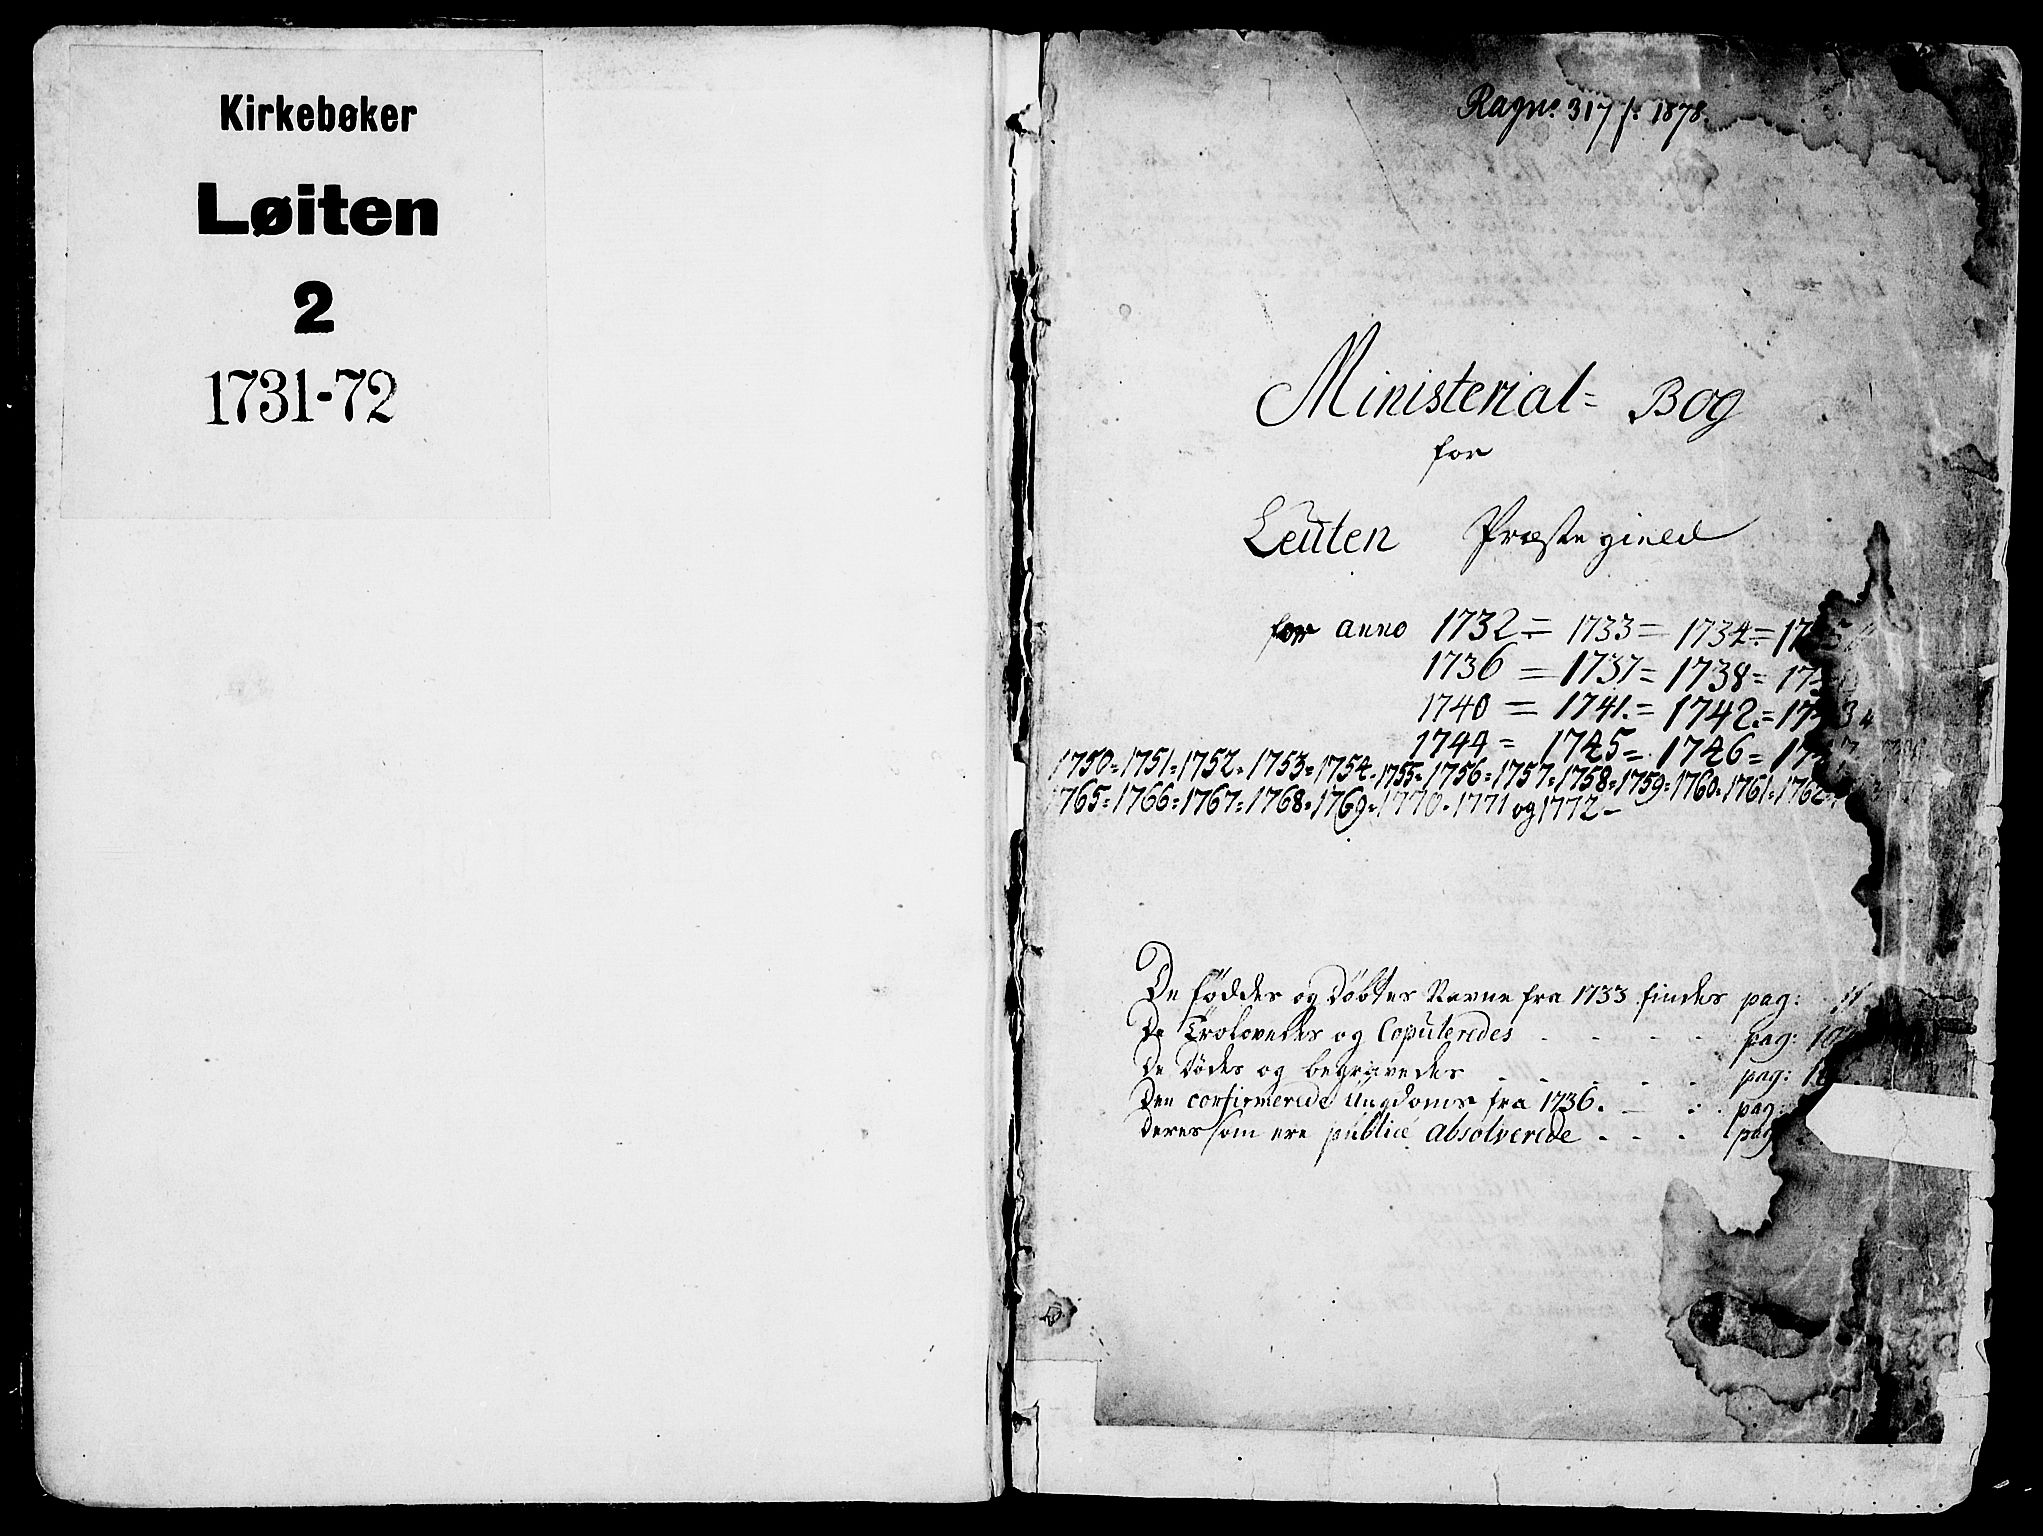 Kirkebøker
Løiten
2
1731-72
317 f. 1878.
Ministerial= Bog
for
Leuten Præste gield
for anno 1732 = 1733 = 1734 =
1736 = 1737 = 1738 =
1740 = 1741. = 1742. =
1744 = 1745 = 1746 =
1750 = 1751 = 1752. 1753 = 1754. 1755 = 1756 = 1757 = 1758 = 1759 = 1760. 1761 = 1762 =
1765 = 1766 = 1767 = 1768 = 1769 = 1770. 1771 og 1772 –
De föddes og Döbtes Navne fra 1733 findes pag: 11.
De Trolovedes og Copuleredes - - - - pag:
De Dödes og begravedes - - - - pag:
Den confirmerede Ungdoms fra 1736. - - - pag:
Deres som ere publicè absolverede - - - pag